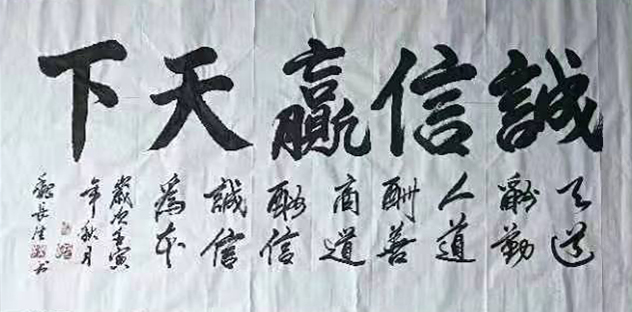 誠信贏天下
天道
酬勤
人道
酬善
商道
酬信
誠信
為本
歲次壬寅
年秋月